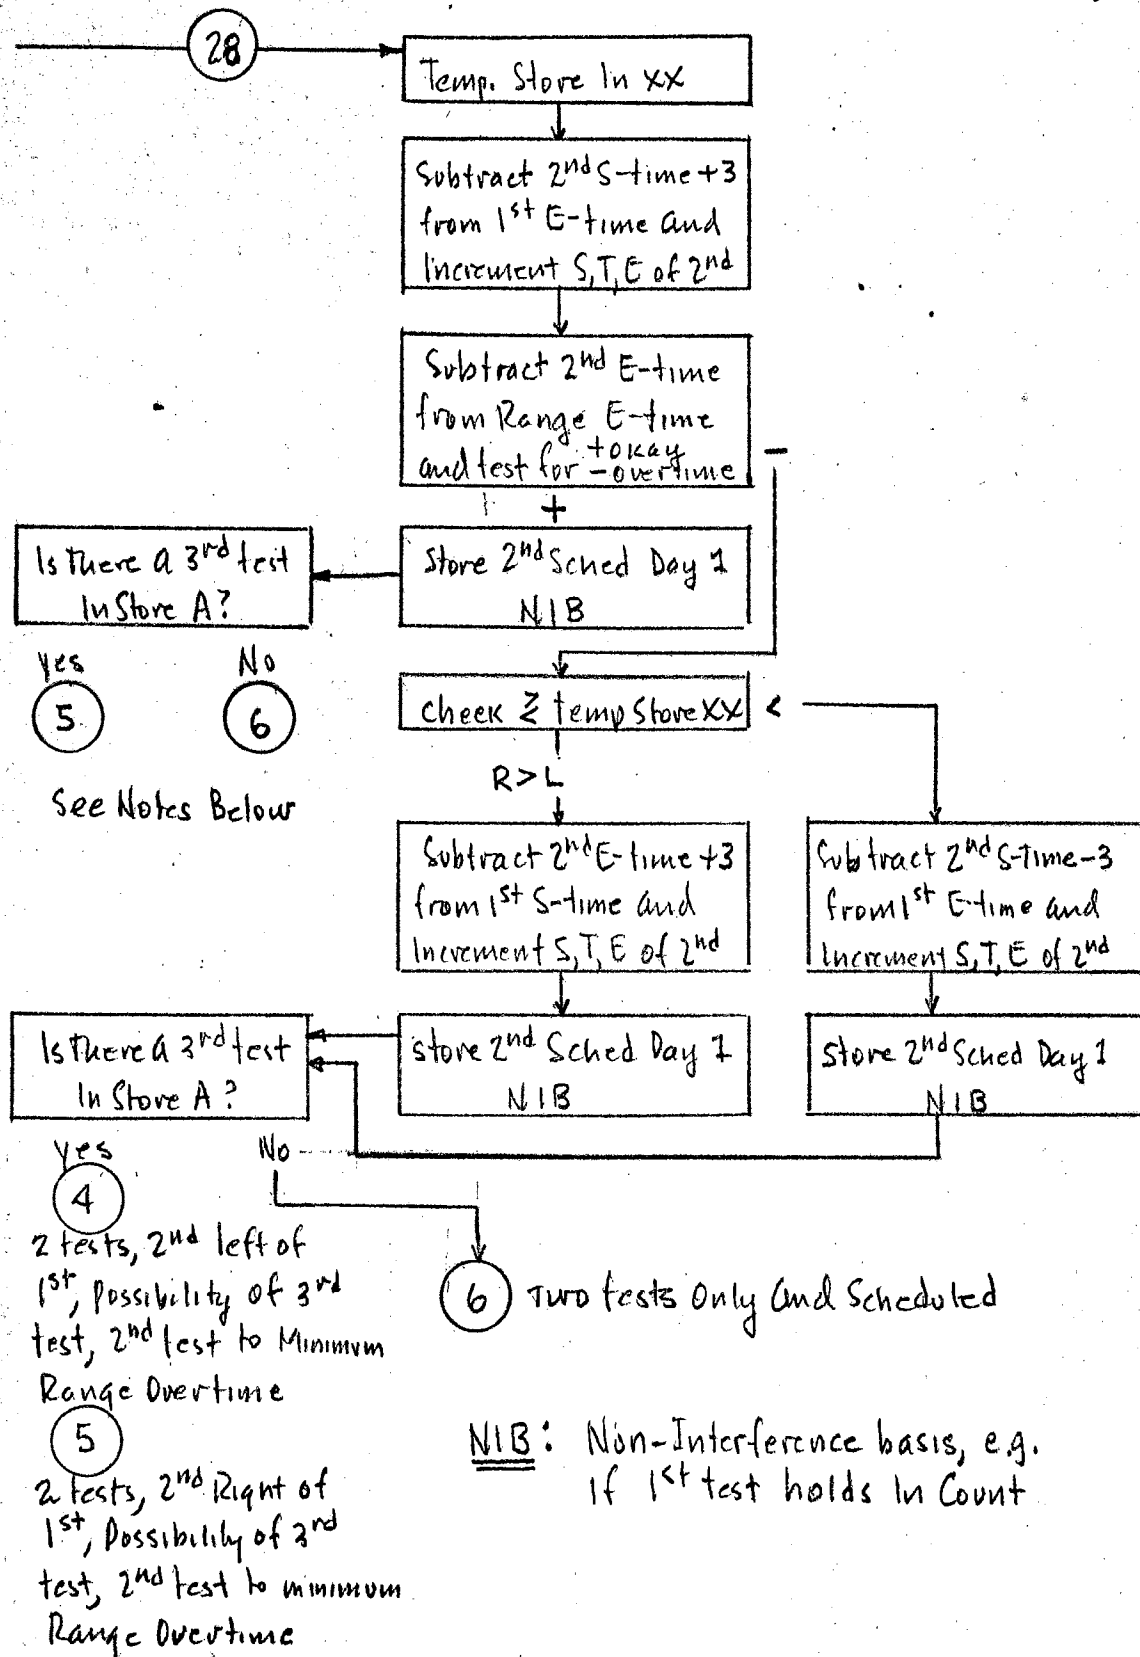 28
Temp. Store In XX
Subtract 2nd S-time+3
from 1st E-time and
Increment S,T,E of 2nd
Subtract 2nd E-time
from Range E-time
and test for +okay
-overtime
-
+
Store 2nd Sched Day 1
NIB
Is there a 3rd test
In Store A?
yes No
5 6
See Notes Below
check ≷ temp Store XX <
R>L
Subtract 2nd E-time+3
from 1st S-time and
Increment S,T,E of 2nd
Subtract 2nd S-Time-3
from 1st E-time and
Increment S,T,E of 2nd
Is there a 3rd test
In Store A?
store 2nd Sched Day 1
NIB
Store 2nd Sched Day 1
NIB
yes No
4
2 tests, 2nd left of
1st, Possibility of 3rd
test, 2nd test to Minimum
Range Overtime
6 Two tests Only and Scheduled
5
2 tests, 2nd Right of
1st, Possibility of 3rd
test, 2nd test to minimum
Range Overtime
NIB: Non-Interference basis, e.g.
If 1st test holds In Count